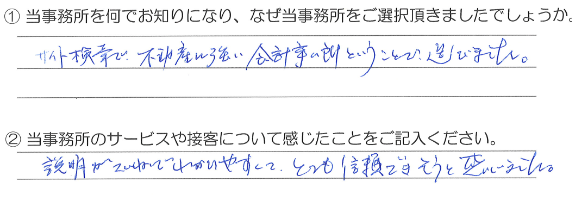 ① 当事務所を何でお知りになり、なぜ当事務所をご選択頂きましたでしょうか。
サイト検索で、不動産に強い会計事務所ということで、選びました。
② 当事務所のサービスや接客について感じたことをご記入ください。
説明がていねいでわかりやすくて、とても信頼できそうと思いました。